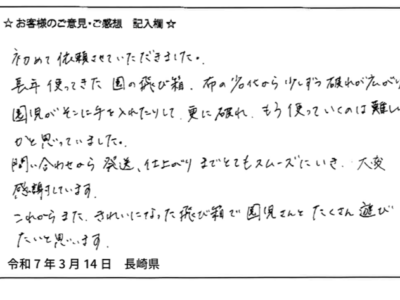 ☆ お客様のご意見・ご感想　記入欄 ☆
初めて依頼させていただきました。
長年使ってきた園の飛び箱、布の劣化から少しずつ破れが広がり
園児がそこに手を入れたりして、更に破れ、もう使っていくのは難しい
かと思っていました。
問い合わせから発送、仕上がりまでとてもスムーズにいき、大変
感謝しています。
これからまた、きれいになった飛び箱で園児さんとたくさん遊び
たいと思います。
令和７年３月１４日　長崎県